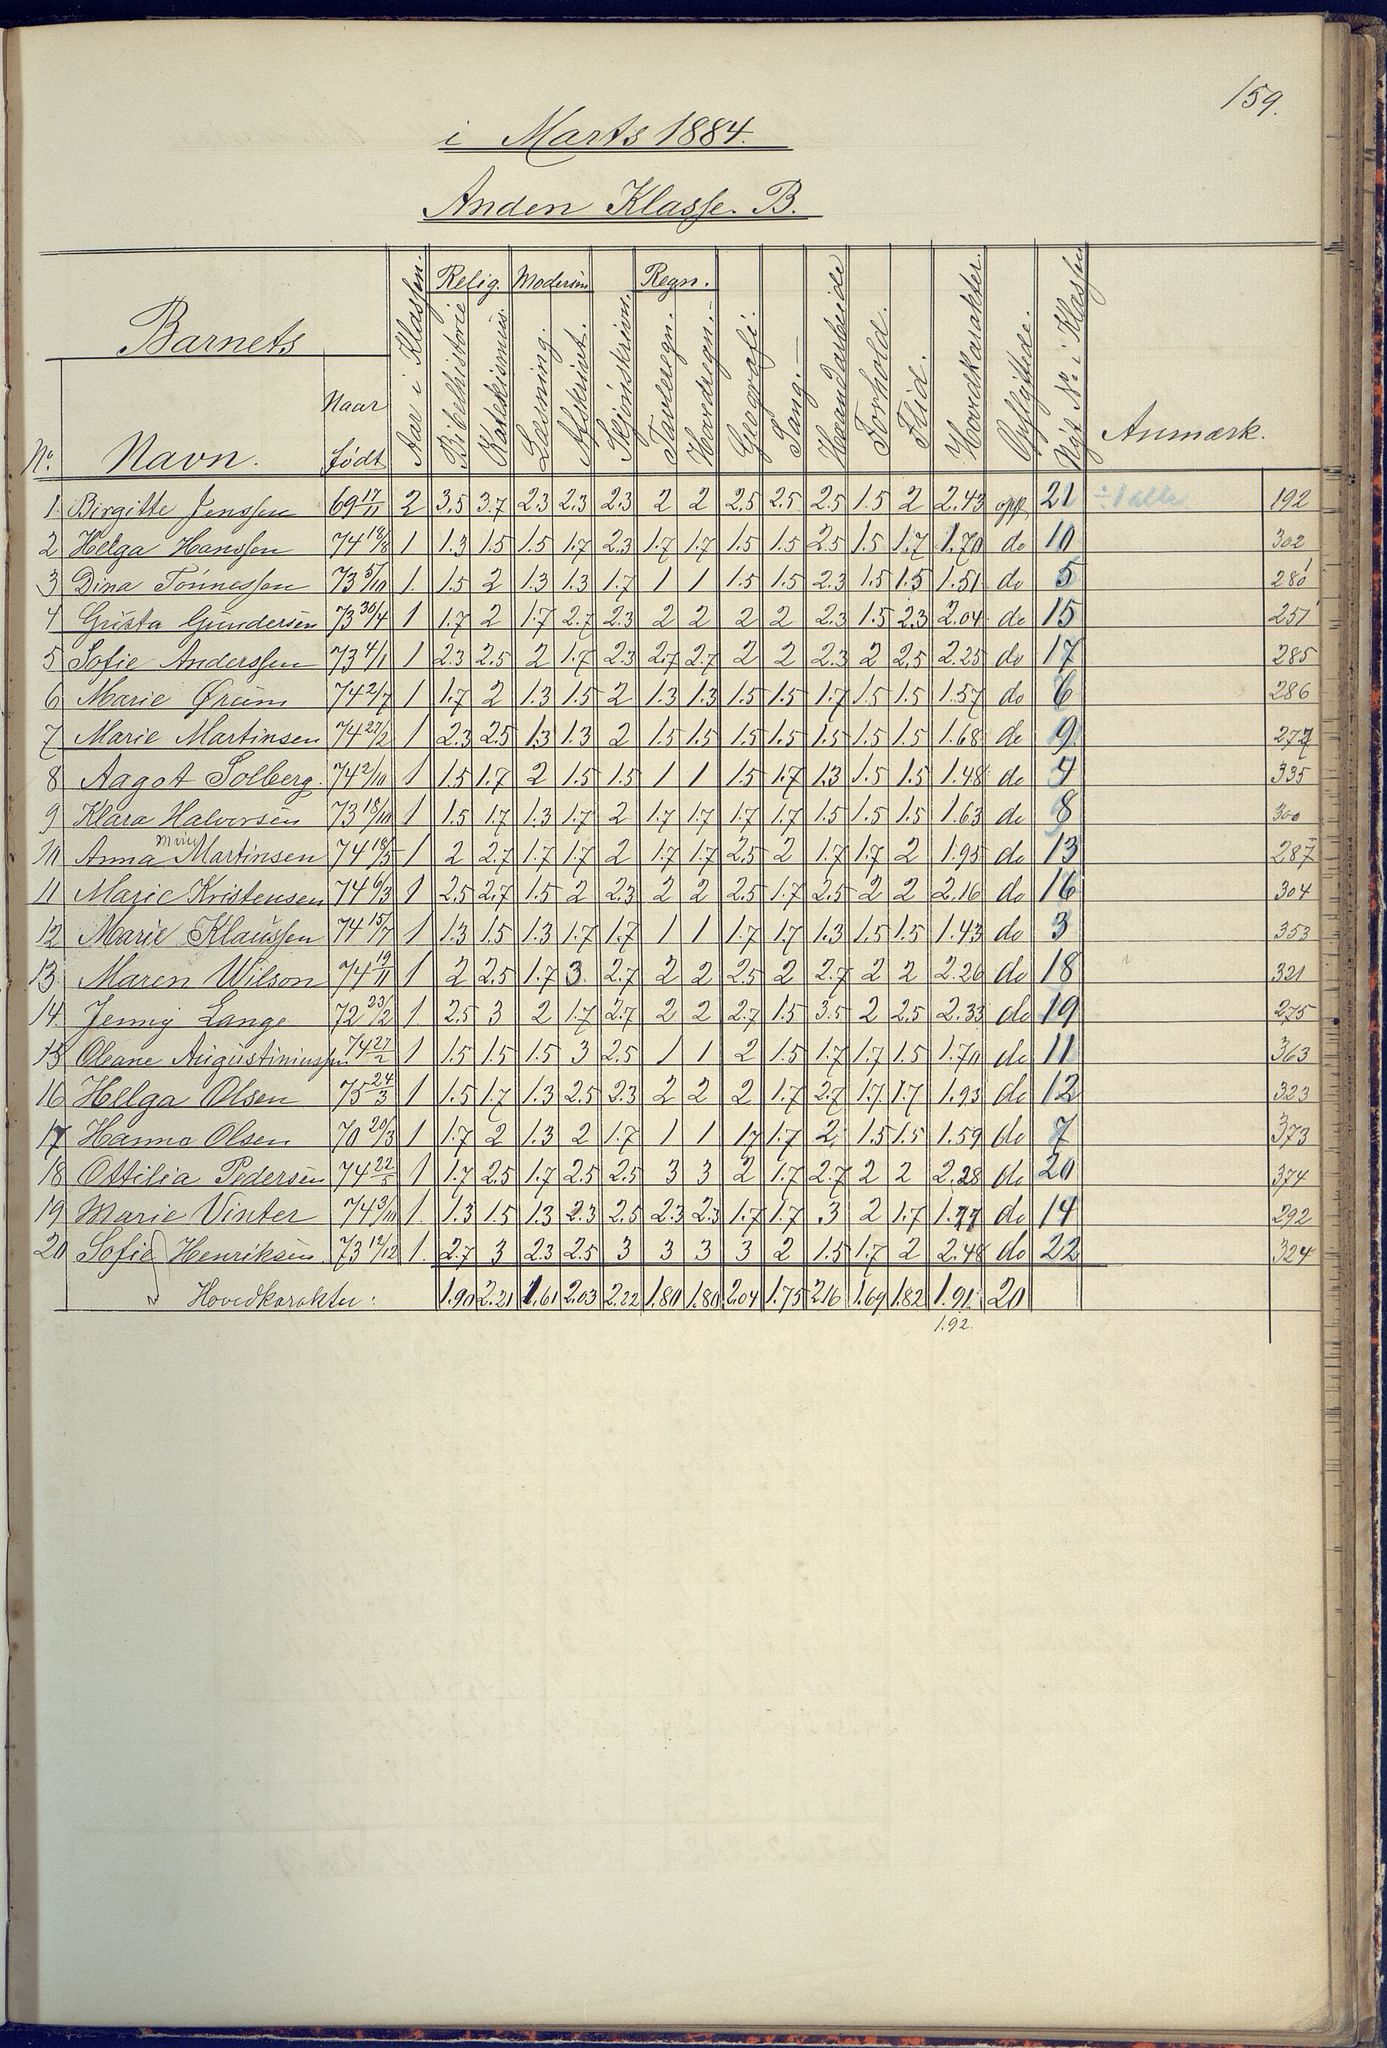 159.
i Marts 1884.
Anden Klasse. B.
Barnets
Relig. Modersm Regn.
No. Navn. Naar født Aar i Klassen. Bibelhistorie Katekismus. Læsning. Afskrivt. Skjönskrivn. Tavleregn. Hovedregn. Geografi. Sang. Haandarbeide Forhold. Flid. Hovedkarakter. Opflyttede. Nyt No. i Klassen Anmærk.
1. Birgitte Jenssen 69 17/11 2 3.5 3.7 2.3 2.3 2.3 2 2 2.5 2.5 2.5 1.5 2 2.43 opp. 21 192
2 Helga Hanssen 74 18/8 1 1.3 1.5 1.5 1.7 2.3 1.7 1.7 1.5 1.5 2.5 1.5 1.7 1.70 do 10 302
3 Dina Tönnessen 73 5/10 1. 1.5 2 1.3 1.3 1.7 1 1 1.5 1.5 2.3 1.5 1.5 1.51 do 5 280
4 Gusta Gundersen 73 30/4 1 1.7 2 1.7 2.7 2.3 2 2 2 2 2.3 1.5 2.3 2.04 do 15 251
5 Sofie Anderssen 73 4/1 1 2.3 2.5 2 1.7 2.3 2.7 2.7 2 2 2.3 2 2.5 2.25 do 17 285
6 Marie Ørum 74 2/7 1 1.7 2 1.3 1.5 2 1.3 1.3 1.5 1.5 1.7 1.5 1.5 1.57 do 6 286
7 Marie Martinsen 74 27/2 1 2.3 2.5 1.3 1.3 2 1.5 1.5 1.5 1.5 1.5 1.5 1.5 1.68 do 9 277
8 Aagot Solberg. 74 2/10 1 1.5 1.7 2 1.5 1.5 1 1 1.5 1.7 1.3 1.5 1.5 1.48 do 4 335
9 Klara Halvorsen 73 18/10 1 1.5 1.7 1.3 1.7 2 1.7 1.7 1.7 1.7 1.5 1.5 1.5 1.63 do 8 300
10 Anna Martinsen 74 18/5 1 2 2.7 1.7 1.7 2 1.7 1.7 2.5 2 1.7 1.7 2 1.95 do 13 287
11 Marie Kristensen 74 6/3 1 2.5 2.7 1.5 2 2.3 2 2 2.5 1.7 2.5 2 2 2.16 do 16 304
12 Marie Klaussen 74 15/7 1 1.3 1.5 1.3 1.7 1.7 1 1 1.7 1.7 1.3 1.5 1.5 1.43 do 3 353
13. Maren Wilson 74 19/11 1 2 2.5 1.7 3. 2.7 2 2 2.5 2 2.7 2 2 2.26 do 18 321
14. Jenny Lange 72 23/2 1. 2.5 3 2 1.7 2.7 2 2 2.7 1.5 3.5 2 2.5 2.33 do 19 275
15 Oleane Augustiniussen 74 27/2 1 1.5 1.5 1.5 3 2.5 1 1 2 1.5 1.7 1.7 1.5 1.70 do 11 363
16 Helga Olsen 75 24/3 1 1.5 1.7 1.3 2.5 2.3 2 2 2 1.7 2.7 1.7 1.7 1.93 do 12 323
17 Hanna Olsen 70 20/3 1 1.7 2 1.3 2 1.7 1 1 1.7 1.7 2 1.5 1.5 1.59 do 7 373
18 Ottilia Pedersen 74 22/5 1 1.7 2.5 1.7 2.5 2.5 3 3 2 1.7 2.7 2 2 2.28 do 20 374
19 Marie Vinter 74 3/10 1. 1.3 1.5 1.3 2.3 2.5 2.3 2.3 1.7 1.7 3 2 1.7 do 14 292
20 Sofie Henriksen 73 12/12 1. 2.7 3 2.3 2.5 3 3 3 3 2 1.5 1.7 2 2.48 do 22 324
Hovedkarakter: 1.90 2.21 1.61 2.03 2.22 1.80 1.80 2.04 1.75 2.16 1.69 1.82 1.91 20
1.92.